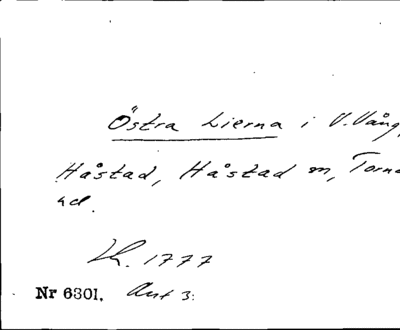 Östra Lierna i V. Vång,
Håstad, Håstad m, Torna
hd.
Lh. 1777
Nr 6301. Akt 3.